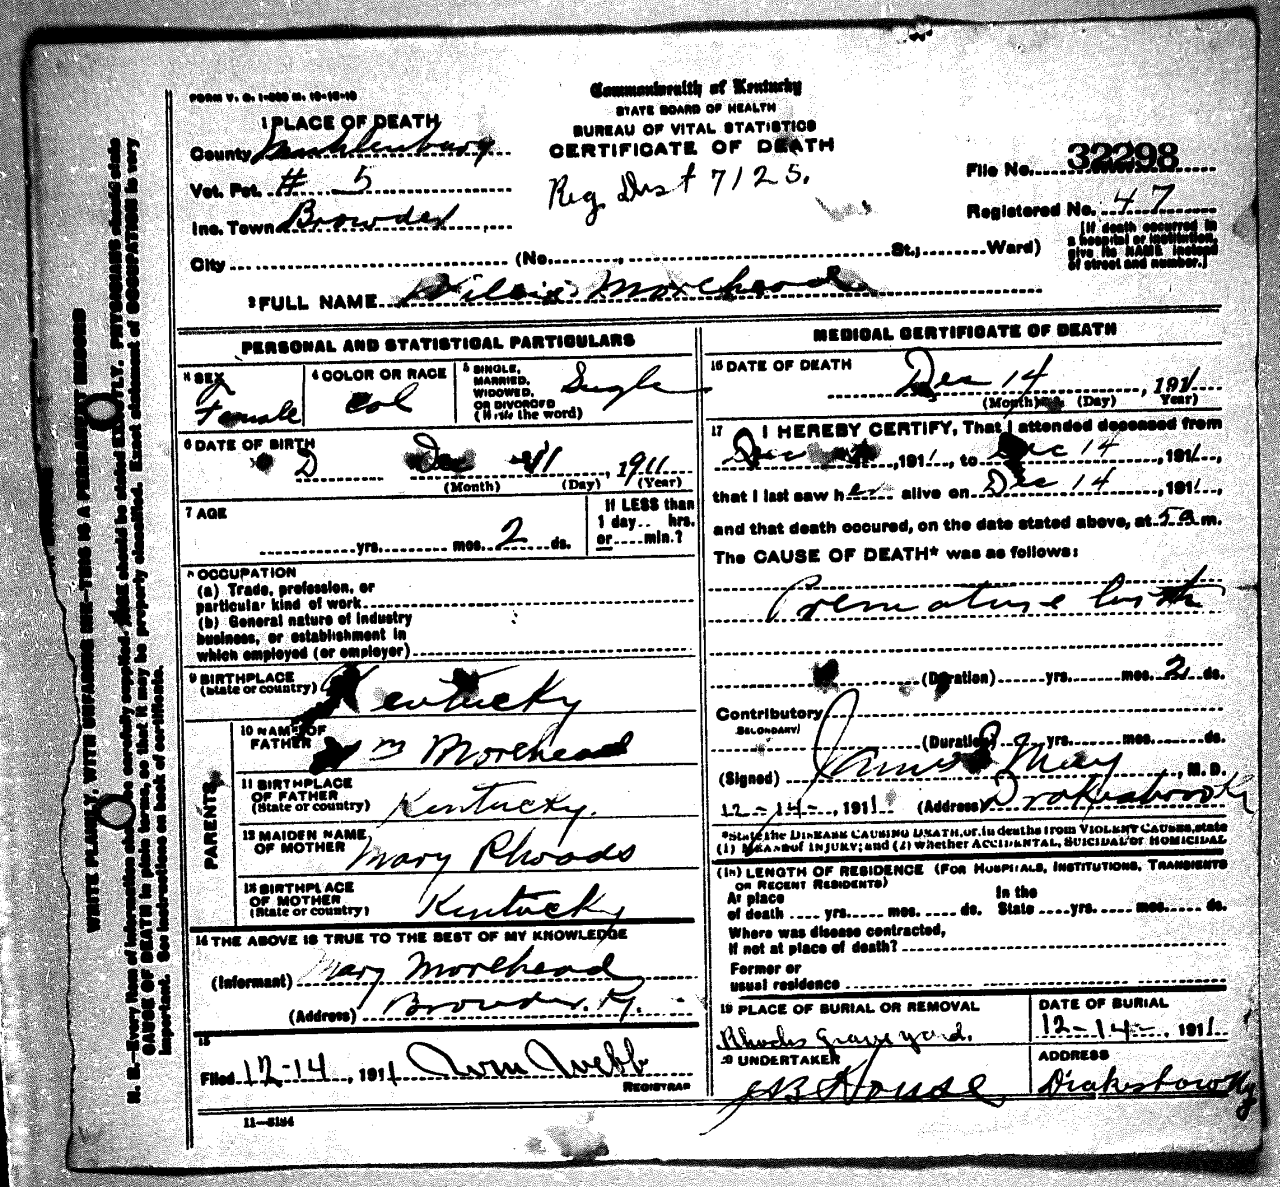 FORM V. S. 1-300 M. 10-16-10
Commonwealth of Kentucky
STATE BOARD OF HEALTH
BUREAU OF VITAL STATISTICS
CERTIFICATE OF DEATH
Reg Dist 7125.
1 PLACE OF DEATH
County Muhlenburg
Vot. Pct. # 5
Inc. Town Browder
City (No. , St.; Ward)
File No. 32298
Registered No. 47
[If death occurred in a hospital or institution, give its NAME instead of street and number.]
2 FULL NAME Morehead
PERSONAL AND STATISTICAL PARTICULARS
3 SEX
Female
4 COLOR OR RACE
Col
5 SINGLE, MARRIED, WIDOWED, OR DIVORCED (Write the word)
Single
6 DATE OF BIRTH
Dec 11, 1911
(Month) (Day) (Year)
7 AGE
yrs. mos. 2 ds.
If LESS than 1 day.. hrs. or....min.?
8 OCCUPATION
(a) Trade, profession, or
particular kind of work
(b) General nature of industry
business, or establishment in
which employed (or employer)
9 BIRTHPLACE
(State or country) Kentucky
PARENTS
10 NAME OF
FATHER m Morehead
11 BIRTHPLACE
OF FATHER
(State or country) Kentucky.
12 MAIDEN NAME
OF MOTHER Mary Rhoads
13 BIRTHPLACE
OF MOTHER
(State or country) Kentucky
14 THE ABOVE IS TRUE TO THE BEST OF MY KNOWLEDGE
(Informant) Mary Morehead
(Address) Browder. Ky.
15
Filed 12-14, 1911 Wm Webb
REGISTRAR
11—5184
MEDICAL CERTIFICATE OF DEATH
16 DATE OF DEATH
Dec 14, 1911
(Month) (Day) Year)
17 I HEREBY CERTIFY, That I attended deceased from
Dec , 1911, to Dec 14, 1911,
that I last saw her alive on Dec 14, 1911,
and that death occured, on the date stated above, at 5 a m.
The CAUSE OF DEATH* was as follows:
Premature birth
(Duration) yrs. mos. 2 ds.
Contributory
SECONDARY)
(Duration) yrs. mos. ds.
(Signed) May, M. D.
12-14-, 1911 (Address) Drakesboro Ky
*State the DISEASE CAUSING DEATH, or, in deaths from VIOLENT CAUSES, state
(1) MEANS of INJURY; and (2) whether ACCIDENTAL, SUICIDAL or HOMICIDAL
(18) LENGTH OF RESIDENCE (FOR HOSPITALS, INSTITUTIONS, TRANSIENTS
OR RECENT RESIDENTS)
At place of death yrs. mos. ds. In the State yrs. mos. ds.
Where was disease contracted,
If not at place of death?
Former or
usual residence
19 PLACE OF BURIAL OR REMOVAL
Rhodes Graveyard.
DATE OF BURIAL
12-14-, 1911
20 UNDERTAKER
J B House
ADDRESS
Drakesboro Ky
WRITE PLAINLY, WITH UNFADING INK—THIS IS A PERMANENT RECORD
N. B.—Every item of information should be carefully supplied. AGE should be stated EXACTLY. PHYSICIANS should state
CAUSE OF DEATH in plain terms, so that it may be properly classified. Exact statement of OCCUPATION is very
important. See instructions on back of certificate.